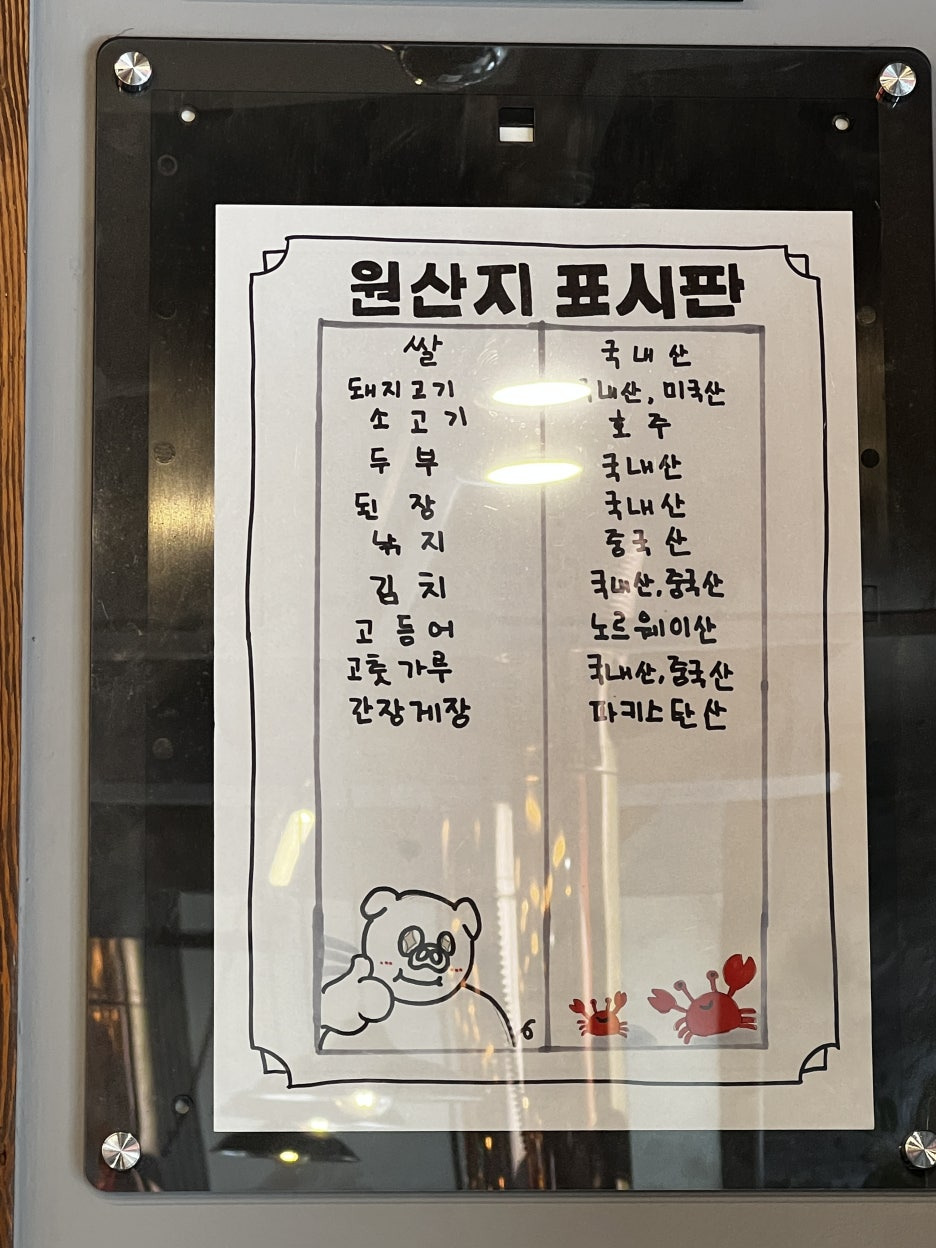 원산지 표시판
쌀 국내산
돼지고기 국내산, 미국산
소고기 호주
두부 국내산
된장 국내산
낚지 중국산
김치 국내산, 중국산
고등어 노르웨이산
고춧가루 국내산, 중국산
간장게장 파키스탄산